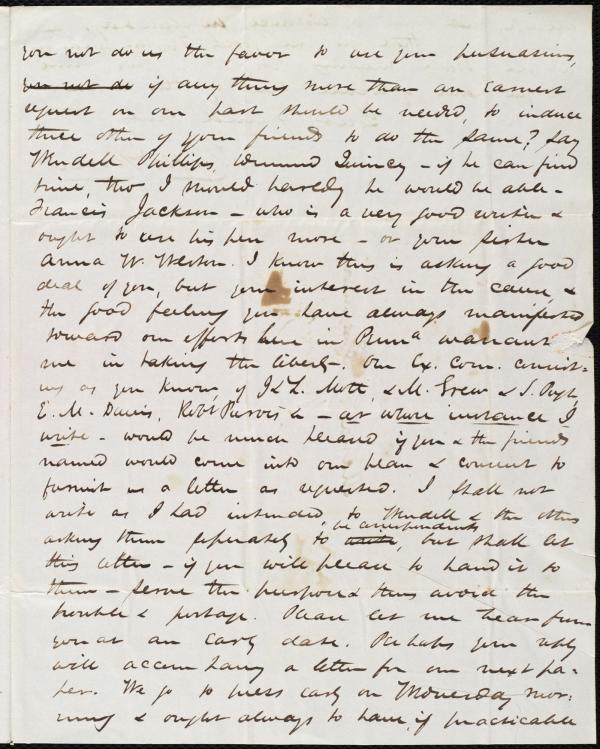 you not do us the favor to use your persuasions,
you not do if any thing more than an earnest
request on our part should be needed, to induce
three other of your friends to do the same? Say
Wendell Phillips, Edmund Quincy - if he can find
time, tho' I should hardly he would be able -
Francis Jackson - who is a very good writer &
ought to use his pen more - or your sister
Anna W. Weston. I know this is asking a good
deal of you, but your interest in the cause, &
the good feeling you have always manifested
toward our efforts here in Penna warrant
me in taking the liberty. Our Ex. Com. consist-
ing as you know, of J & L. Mott, & M. Grew & S. Pugh,
E. M. Davis, Robt Purvis & - at whose instance I
write - would be much pleased if you & the friends
named would come into our plan & consent to
furnish us a letter as requested. I shall not
write as I had intended, to Wendell & the others
asking them separately to write, be correspondents, but shall let
this letter - if you will please to hand it to
them - serve the purpose & thus avoid the
trouble & postage. Please let me hear from
you at an early date. Perhaps your reply
will accompany a letter for our next pa-
per. We go to press early on Wednesday mor-
ning & ought always to have, if practicable